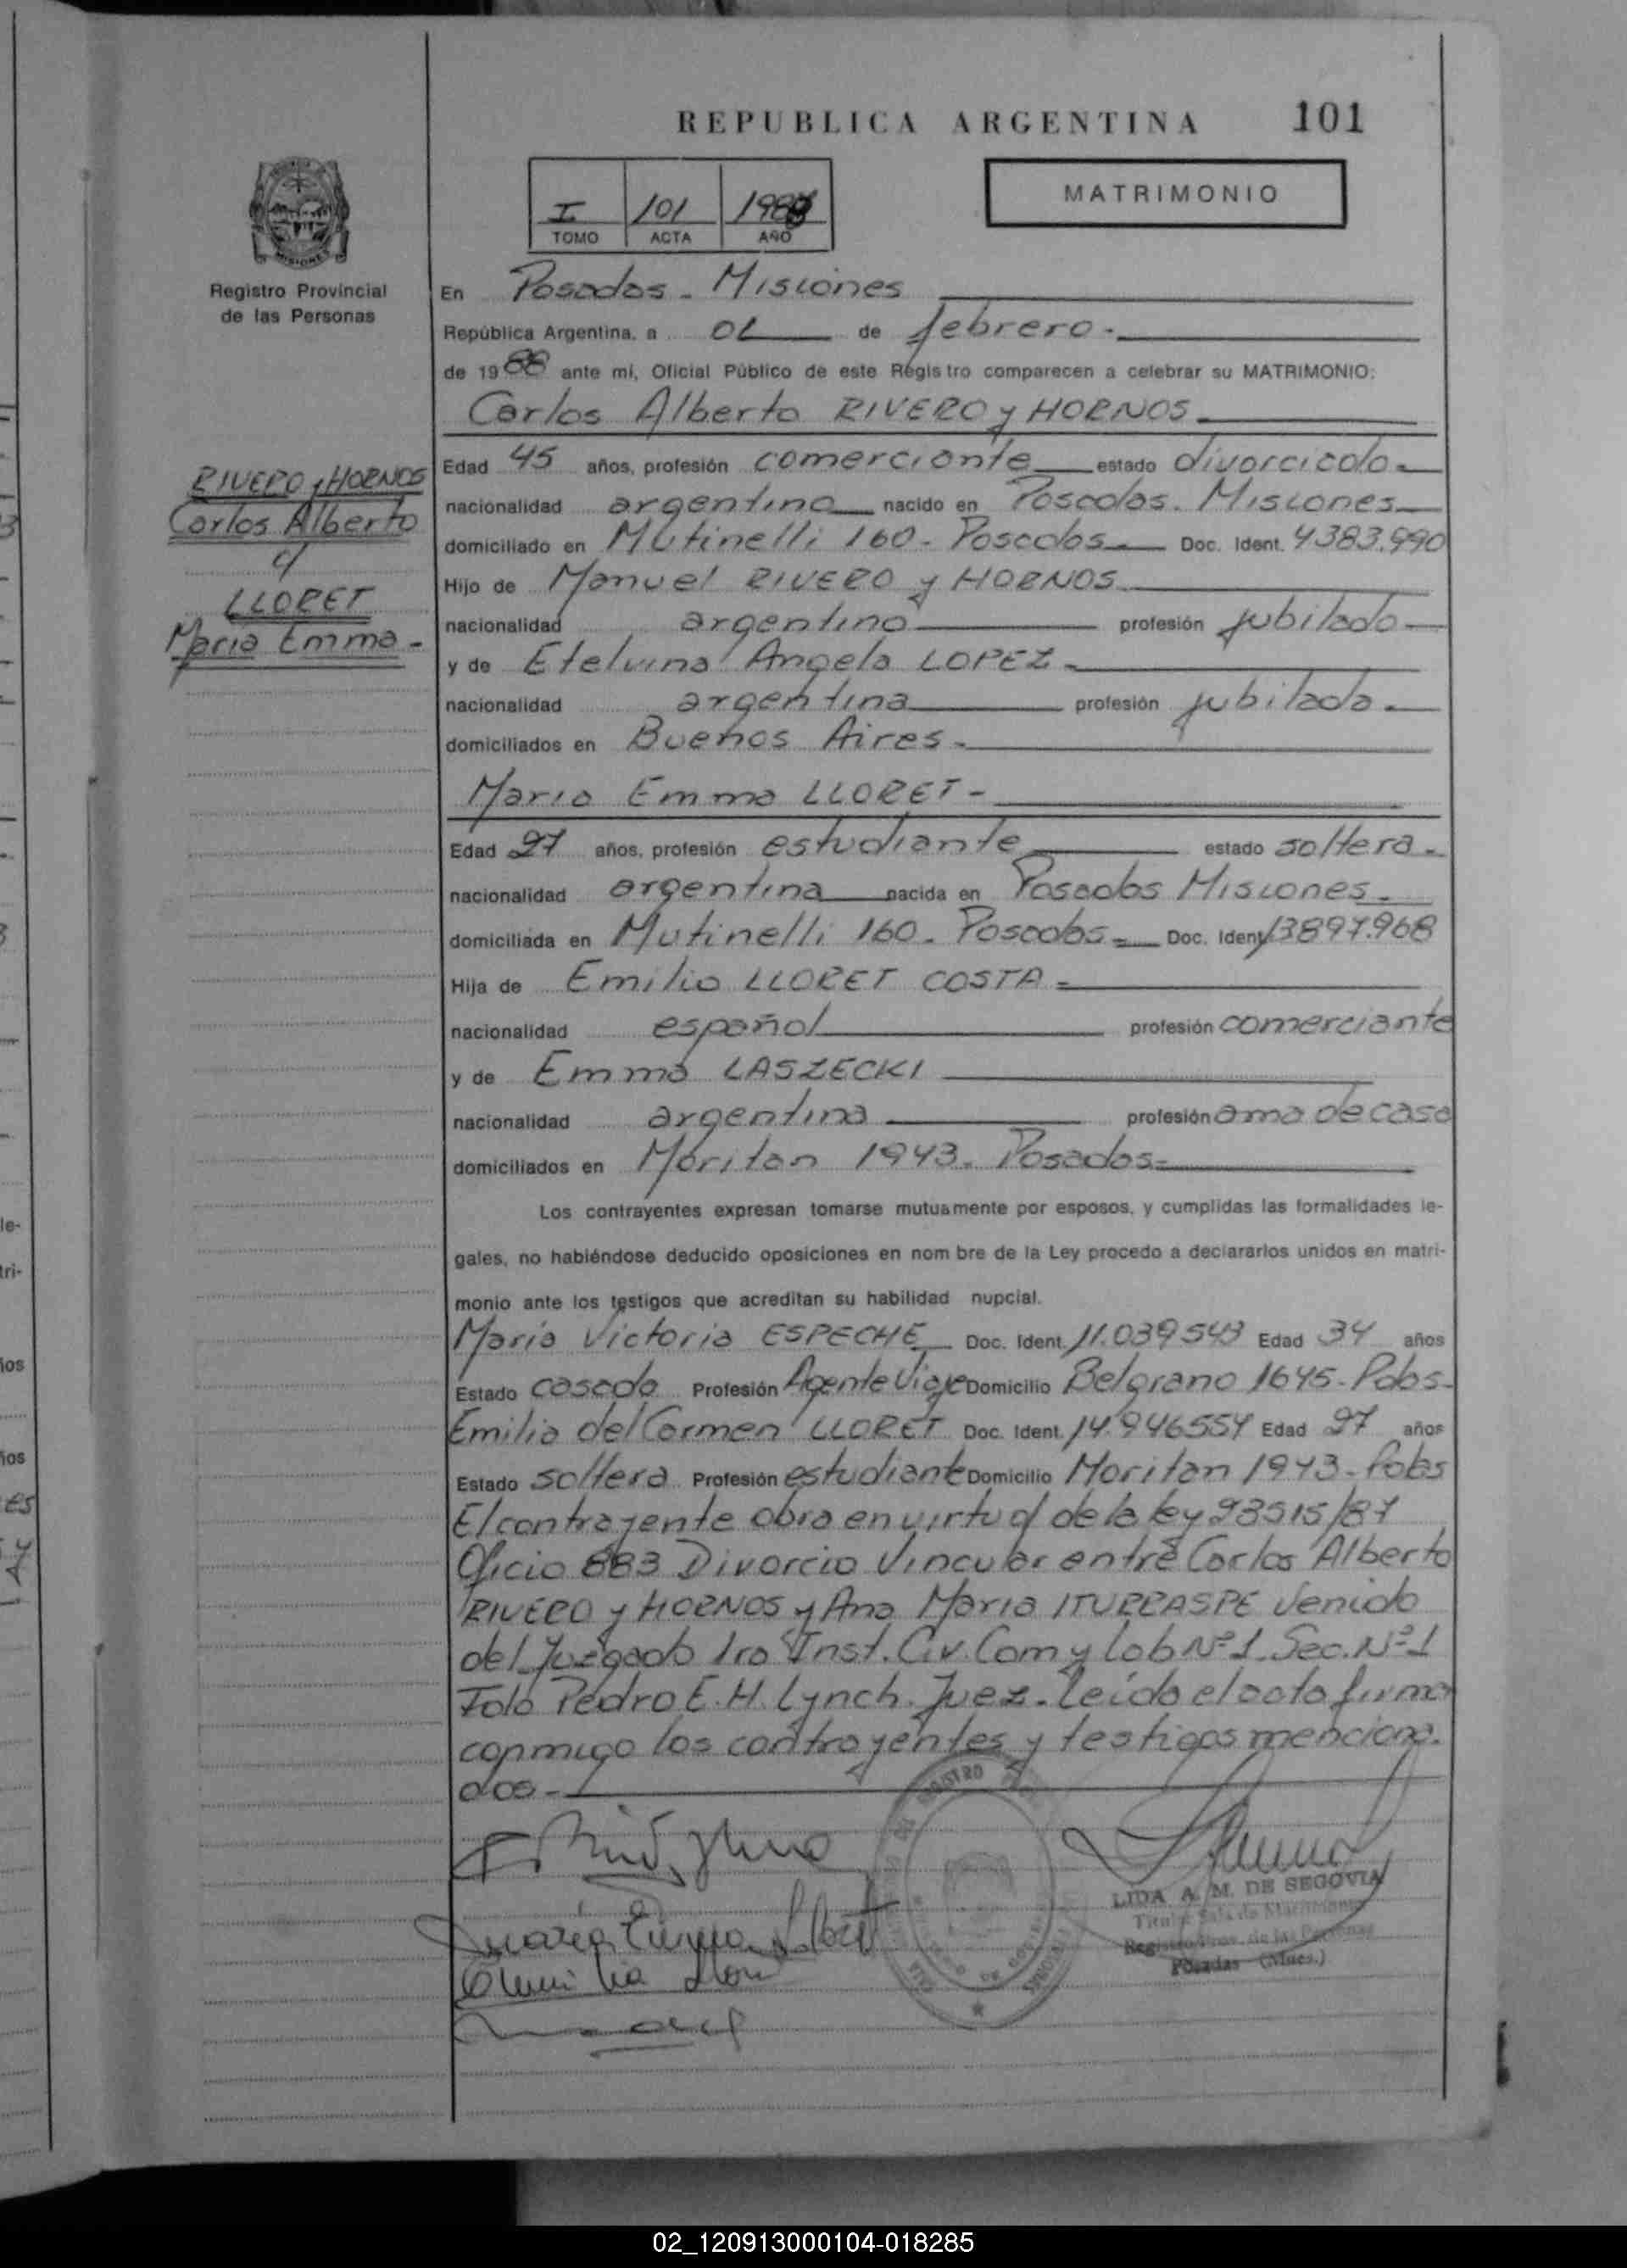 REPUBLICA ARGENTINA 101
I 101 1988
TOMO ACTA AÑO
MATRIMONIO
MISIONES
Registro Provincial
de las Personas
RIVERO y HORNOS
Carlos Alberto
c/
LLORET
Maria Emma -
En Posadas - Misiones
República Argentina, a 01 de febrero.
de 1988 ante mi, Oficial Público de este Regis tro comparecen a celebrar su MATRIMONIO:
Carlos Alberto RIVERO y HORNOS
Edad 45 años, profesión comerciante estado divorciado
nacionalidad argentina nacido en Posadas. Misiones
domiciliado en Mutinelli 160 - Posadas Doc. Ident. 4383.990
Hijo de Manuel RIVERO y HORNOS
nacionalidad argentino profesión jubilado
y de Etelvina Angela LOPEZ
nacionalidad argentina profesión jubilada
domiciliados en Buenos Aires -
Maria Emma LLORET -
Edad 27 años, profesión estudiante estado soltera -
nacionalidad argentina nacida en Posadas Misiones -
domiciliada en Mutinelli 160 - Posadas Doc. Ident 13897.968
Hija de Emilio LLORET COSTA
nacionalidad español profesión comerciante
y de Emma LASZECKI
nacionalidad argentina profesión ama de casa
domiciliados en Moritan 1943. Posadas
Los contrayentes expresan tomarse mutuamente por esposos, y cumplidas las formalidades le-
gales, no habiéndose deducido oposiciones en nom bre de la Ley procedo a declararlos unidos en matri-
monio ante los testigos que acreditan su habilidad nupcial.
María Victoria ESPECHE Doc. Ident. 11.039543 Edad 34 años
Estado casada Profesión Agente Viaje Domicilio Belgrano 1645 - Pdas -
Emilia del Carmen LLORET Doc. Ident. 14.946554 Edad 27 años
Estado soltera Profesión estudiante Domicilio Moritan 1943 - Pdas
El contrayente obra en virtud de la ley 23515/87
Oficio 883 Divorcio Vincular entre Carlos Alberto
RIVERO y HORNOS y Ana Maria ITURRASPE venido
del Juzgado 1ra Inst. Civ. Com y Lab Nº 1 Sec. Nº 1
Fdo Pedro E. H. Lynch. Juez - Leída el acta firman
conmigo los contrayentes y testigos menciona.
dos -
Maria Emma Lloret
Emilia Lloret
LIDA A. M. DE SEGOVIA
Posadas (Mnes.)
02_120913000104-018285